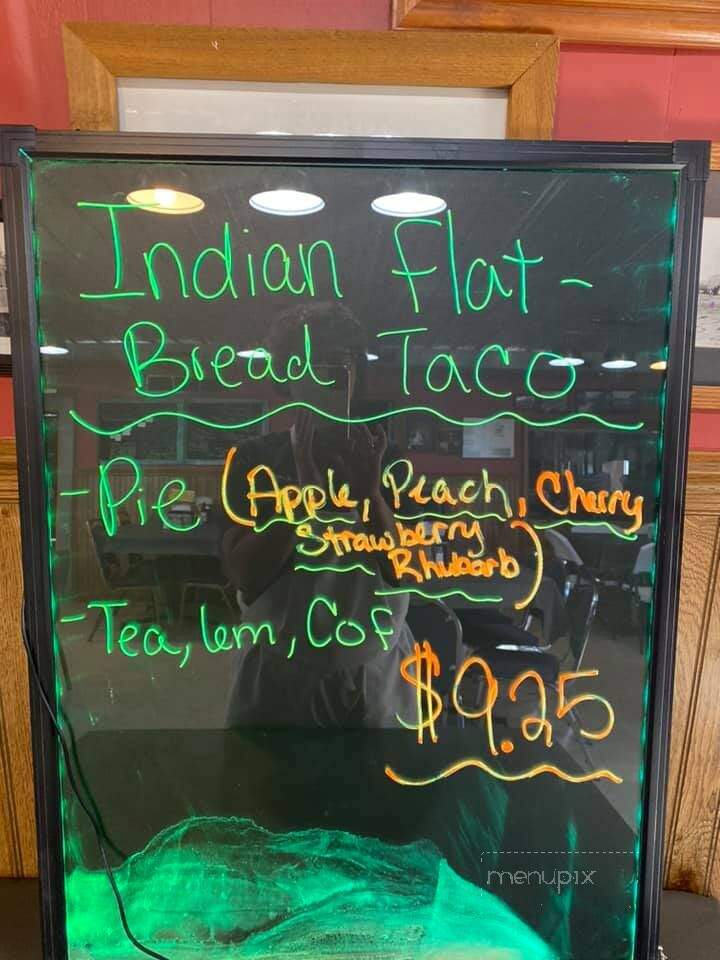 Indian Flat-
Bread Taco
-Pie (Apple, Peach, Cherry
Strawberry
Rhubarb)
-Tea, lem, Cof
$9.25
menupix